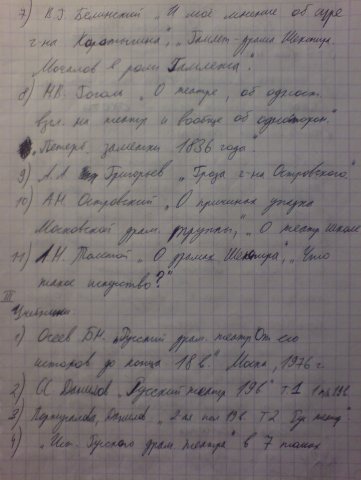 7) В.Г. Белинский „И моё мнение об игре
г-на Каратыгина“, „Гамлет - драма Шекспира.
Мочалов в роли Гамлета“.
8) Н.В. Гоголь „О театре, об одност.
взгл. на театр и вообще об односторон.“
„Петерб. заметки 1836 года“
9) А.А. Григорьев „Гроза г-на Островского“
10) А.Н. Островский „О причинах упадка
Московской драм. труппы“, „О театр. школе
11) Л.Н. Толстой „О драмах Шекспира“, „Что
такое искусство?“
III
Учебники
1) Асеев Б.Н. „Русский драм. театр От его
истоков до конца 18 в.“ Москв, 1976 г.
2) Данилов „Русский театр 19 в“ т 1 1 пол 19 в.
3) Португалова, Данилов „2-ая пол 19 в. Т2
4) „Ист. Русского драм. театра“ в 7 томах